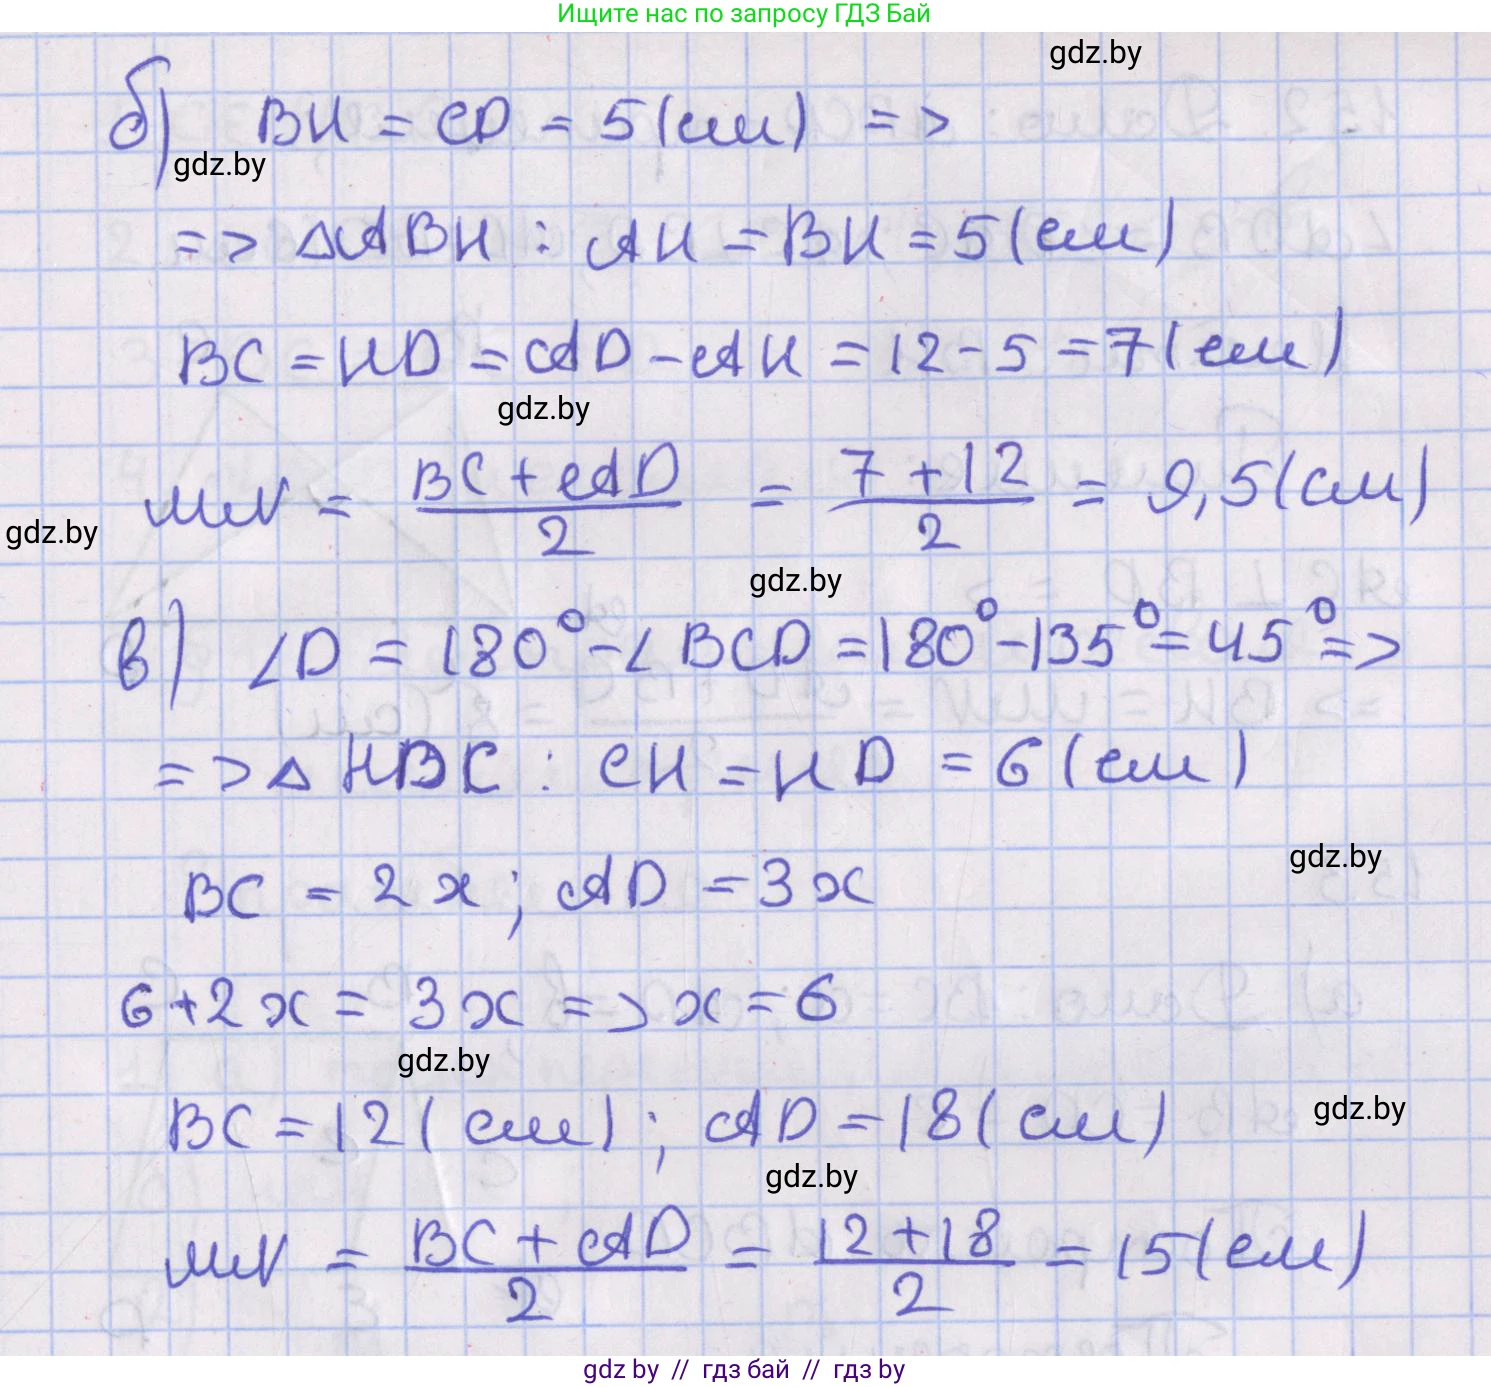 Ищите нас по запросу ГДЗ Бай
gdz.by
б) BH = CD = 5 (см) =>
gdz.by
=> △ABH : AH = BH = 5 (см)
BC = HD = AD - AH = 12 - 5 = 7 (см)
gdz.by
MN = (BC + AD)/2 = (7 + 12)/2 = 9,5 (см)
gdz.by
gdz.by
в) ∠D = 180° - ∠BCD = 180° - 135° = 45° =>
=> △HDC : CH = HD = 6 (см)
gdz.by
BC = 2x ; AD = 3x
6 + 2x = 3x => x = 6
gdz.by
BC = 12 (см) ; AD = 18 (см)
gdz.by
gdz.by
MN = (BC + AD)/2 = (12 + 18)/2 = 15 (см)
gdz.by // гдз бай // гдз by